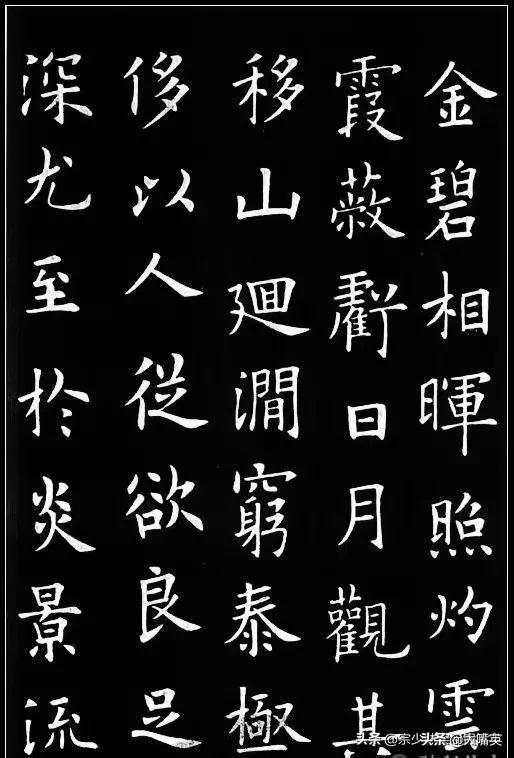 金碧相暉照灼雲
霞蔽虧日月觀其
移山廻澗窮泰極
侈以人從欲良足
深尤至於炎景流
头条@宗少
头条@大嘴英